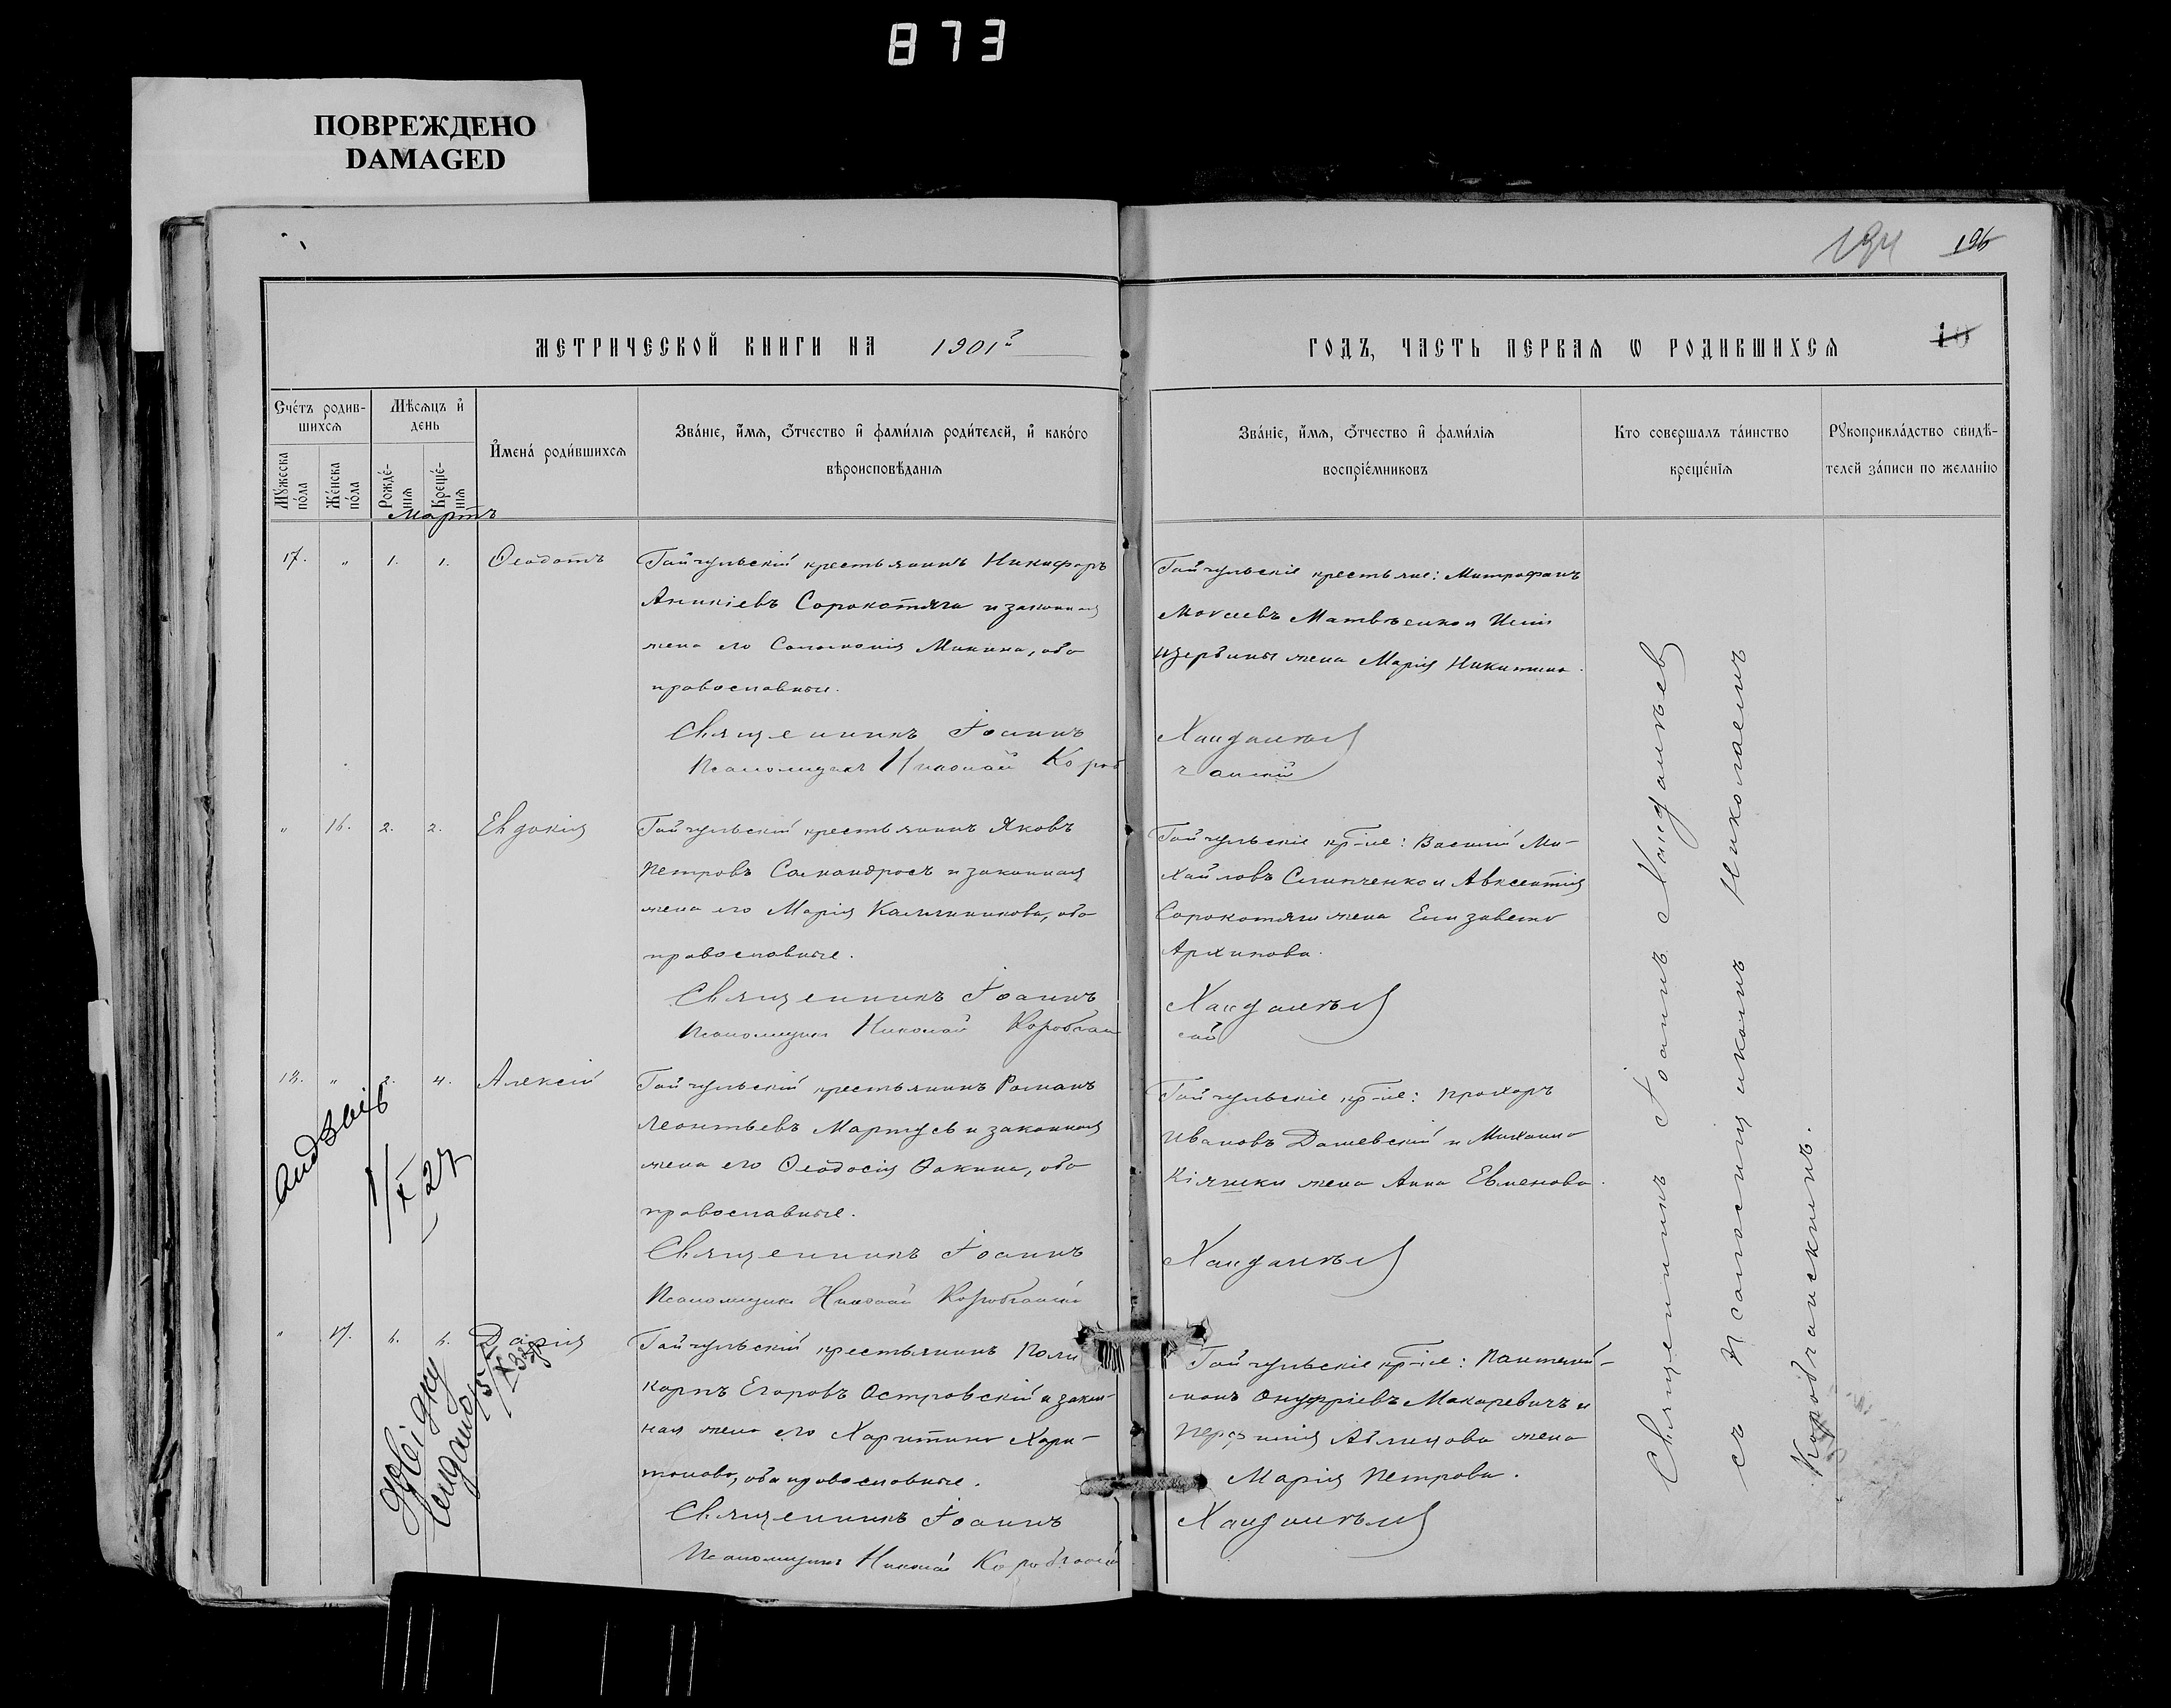 873
ПОВРЕЖДЕНО
DAMAGED
194 196
МЕТРИЧЕСКОЙ КНИГИ НА 1901 г
ГОДЪ, ЧАСТЬ ПЕРВАЯ Ѡ РОДИВШИХСЯ
10
Счетъ родив-
шихся
Мужеска
пола
Женска
пола
Мѣсяцъ и
день
Рожде-
нія
Креще-
нія
Имена родившихся
Званіе, имя, отчество и фамилія родителей, и какого
вѣроисповѣданія
Званіе, имя, отчество и фамилія
воспріемниковъ
Кто совершалъ таинство
крещенія
Рукоприкладство свидѣ-
телей записи по желанію
Мартъ
17. " 1. 1. Ѳеодотъ
Гайчульскій крестьянинъ Никифоръ
Аникіевъ Сорокотяга и законная
жена его Соломонія Минина, оба
православные.
Священникъ Іоаннъ
Псаломщикъ Николай Короб
Гайчульскіе крестьяне: Митрофанъ
Мокіевъ Матвѣенко и
жена Марія Никитина.
Ханdалѣев
чанскій
" 16. 2. 2. Евдокія
Гайчульскій крестьянинъ Яковъ
Петровъ Саландросъ и законная
жена его Марія Калинникова, оба
православные.
Священникъ Іоаннъ
Псаломщикъ Николай Коробчан
Гайчульскіе кр-не: Василій Ми-
хайловъ Слинченко и Авксентія
Сорокотяги жена Елизавета
Архипова.
скій
18. " 2. 4. Алексій
Гайчульскій крестьянинъ Романъ
Леонтьевъ Мартусь и законная
жена его Ѳеодосія Ѳокина, оба
православные.
Священникъ Іоаннъ
Псаломщикъ Николай Коробчанскій
Гайчульскіе кр-не: Прохоръ
Ивановъ Дашевскій и Михаила
Кіяшки жена Анна Евменова.
1/X 27
" 17. 6. 6. Дарія
Гайчульскій крестьянинъ Поли
карпъ Егоровъ Островскій и закон-
ная жена его Харитина Хари-
тонова, оба православные.
Священникъ Іоаннъ
Псаломщикъ Николай Коробчанскій
Гайчульскіе кр-не: Пантелей-
монъ Онуфріевъ Макаревичъ и
жена
Марія Петрова.
довідку
Священникъ Іоаннъ
съ Псаломщикомъ Николаемъ
Коробчанскимъ.